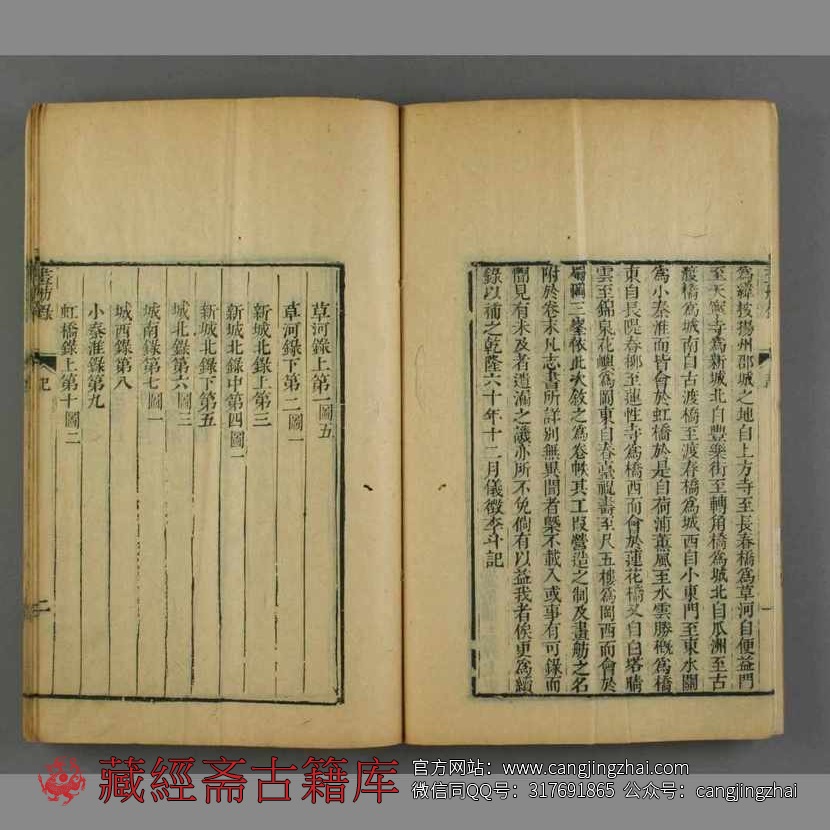 為緯按揚州郡城之地自上方寺至長春橋為草河自便益門
至天寧寺為新城北自豐樂街至轉角橋為城北自瓜洲至古
渡橋為城南自古渡橋至渡春橋為城西自小東門至東水關
為小秦淮而皆會於虹橋於是自荷浦薰風至水雲勝概為橋
東自長隄春柳至蓮性寺為橋西而會於蓮花橋又自白塔晴
雲至錦泉花嶼為岡東自春臺祝壽至尺五樓為岡西而會於
蜀岡三峯依此次敘之為卷帙其工段營造之制及畫舫之名
附於卷末凡志書所詳別無異聞者槩不載入或事有可錄而
聞見有未及者遺漏之譏亦所不免倘有以益我者俟更為續
錄以補之乾隆六十年十二月儀徵李斗記
畫舫錄
記
一
草河錄上第一圖五
草河錄下第二圖一
新城北錄上第三
新城北錄中第四圖二
新城北錄下第五
城北錄第六圖三
城南錄第七圖一
城西錄第八
小秦淮錄第九
虹橋錄上第十圖二
畫舫錄
二
藏經斋古籍库
官方网站：www.cangjingzhai.com
微信同QQ号：317691865 公众号：cangjingzhai